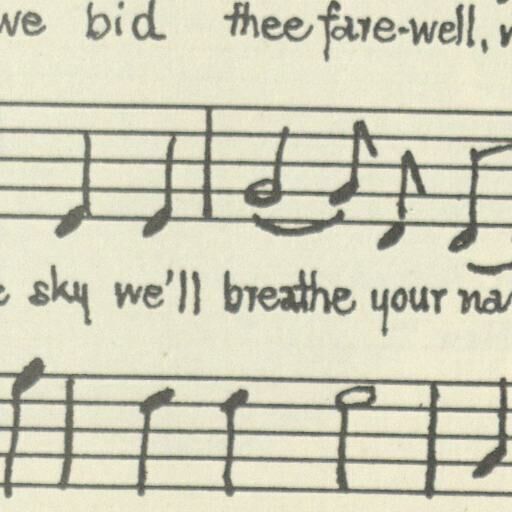 we bid thee fare-well,
sky we'll breathe your